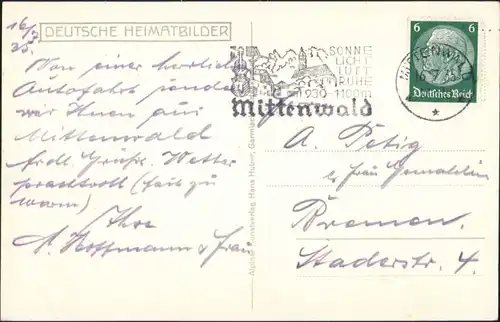 16/7
35.
DEUTSCHE HEIMATBILDER
Von einer herrlichen
Autofahrt senden
wir Ihnen aus
Mittenwald
frdl Grüße. Wetter
prachtvoll (fast zu
warm)
Ihre
A. Hoffmann & Frau
Alpiner Kunstverlag Hans Huber, Garmisch
SONNE
LICHT
LUFT
RUHE
930-1100m
Mittenwald
6 6
Deutsches Reich
MITTENWALD
A. Petig
& Frau Gemahlin
Bremen.
Staderstr. 4.